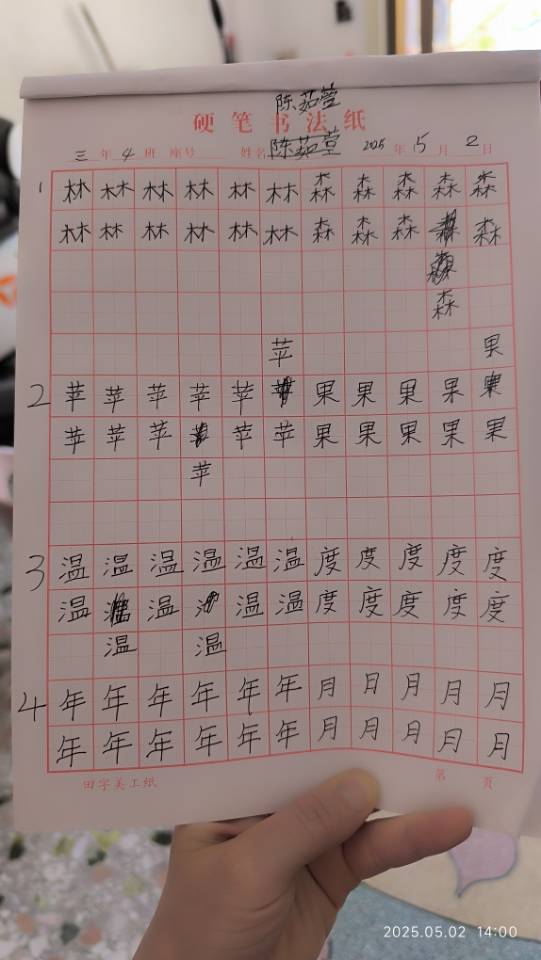 陈茹萱
硬笔书法纸
三年4班 座号 姓名 陈茹萱 2025年5月2日
1 林林林林林林森森森森森
林林林林林林森森森森
森
苹 果
2 苹苹苹苹苹果果果果
苹苹苹苹苹果果果果果
苹
3 温温温温温温度度度度度
温温温温度度度度度
温 温
4 年年年年年年月月月月月
年年年年年年月月月月月
田字美工纸 第 页
2025.05.02 14:00